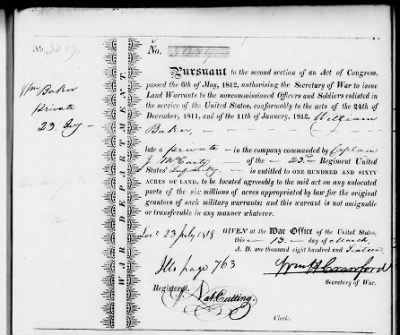 No. 3089.
No. 3089
Wm Baker
Private
23. Inf
WAR DEPARTMENT.
Pursuant to the second section of an Act of Congress,
passed the 6th of May, 1812, authorising the Secretary of War to issue
Land Warrants to the noncommissioned Officers and Soldiers enlisted in
the service of the United States, conformably to the acts of the 24th of
December, 1811, and of the 11th of January, 1812. William
Baker,
late a private in the company commanded by Captain
J. McCarty of the 23rd Regiment United
States' Infantry is entitled to ONE HUNDRED AND SIXTY
ACRES OF LAND, to be located agreeably to the said act on any unlocated
parts of the six millions of acres appropriated by law for the original
grantees of such military warrants; and this warrant is not assignable
or transferable in any manner whatever.
23 July 1818
GIVEN at the War Office of the United States,
this 13 day of March
A. D. one thousand eight hundred and sixteen
page 763
Wm H Crawford
Secretary of War.
Registered,
Nat Cutting.
Clerk.